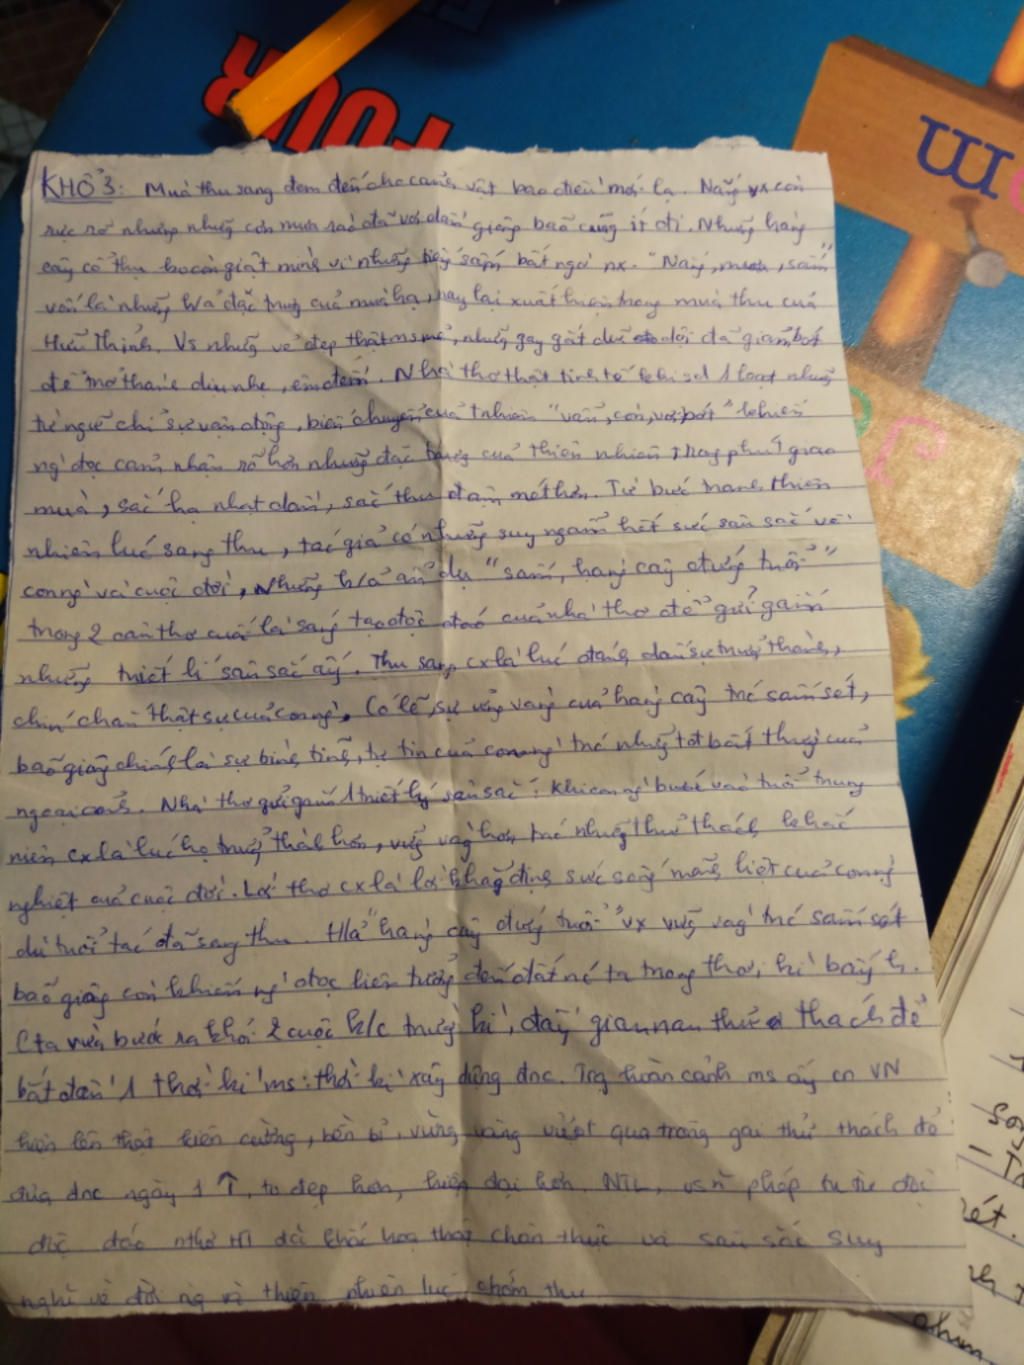 FOUR
m
KHỔ 3: Mùa thu sang đem đến cho cảnh vật bao điều mới lạ. Nắng vx còn
rực rỡ nhưng những cơn mưa rào đã vơi dần, giông bão cũng ít đi. Những hàng
cây cổ thụ ko còn giật mình vì những tiếng sấm bất ngờ nx. "Nắng, mưa, sấm"
vốn là những h/ả đặc trưng của mùa hạ, nay lại xuất hiện trong mùa thu của
Hữu Thỉnh. Vs những vẻ đẹp thật ms mẻ, những gay gắt dữ dội đã giảm bớt
để trở thành dịu nhẹ, êm đềm. Nhà thơ thật tinh tế khi sd 1 loạt những
từ ngữ chỉ sự vận động, biến chuyển của tnhiên "vẫn, còn, vơi, bớt" khiến
ng' đọc cảm nhận rõ hơn những đặc trưng của thiên nhiên trong phút giao
mùa, sắc hạ nhạt dần, sắc thu đậm nét hơn. Từ bức tranh thiên
nhiên lúc sang thu, tác giả có những suy ngẫm hết sức sâu sắc về
con ng' và cuộc đời, Những h/ả ẩn dụ "sấm, hàng cây đứng tuổi"
trong 2 câu thơ cuối là sáng tạo độc đáo của nhà thơ để gửi gắm
những triết lí sâu sắc ấy. Thu sang cx là lúc đánh dấu sự trưởng thành,
chín chắn thật sự của con ng'. Có lẽ, sự vững vàng của hàng cây trc sấm sét,
bão giông chính là sự bình tĩnh, tự tin của con ng' trc những tốt bất thường của
ngoại cảnh. Nhà thơ gửi gắm 1 triết lý sâu sắc: khi con ng' bước vào tuổi trung
niên cx là lúc họ trưởng thành hơn, vững vàng hơn trc những thử thách khắc
nghiệt của cuộc đời. Lời thơ cx là lời khẳng định sức sống mãnh liệt của con ng'
dù tuổi tác đã sang thu. H/ả "hàng cây đứng tuổi" vx vững vàng trc sấm sét
bão giông còn khiến ng' đọc liên tưởng đến đất nc ta trong thời kì bấy h.
Cta vừa bước ra khỏi 2 cuộc k/c trường kì, đầy gian nan thử thách để
bắt đầu 1 thời kì ms: thời kì xây dựng đnc. Trg hoàn cảnh ms ấy cn VN
hiện lên thật kiên cường, bền bỉ, vững vàng vượt qua trông gai thử thách để
đưa đnc ngày 1 ↑, to đẹp hơn, hiện đại hơn. NTL, vs n~ pháp tu từ đối
độc đáo nthơ HT đã khắc họa thật chân thực và sâu sắc suy
nghĩ về đời ng và thiên nhiên lúc chớm thu